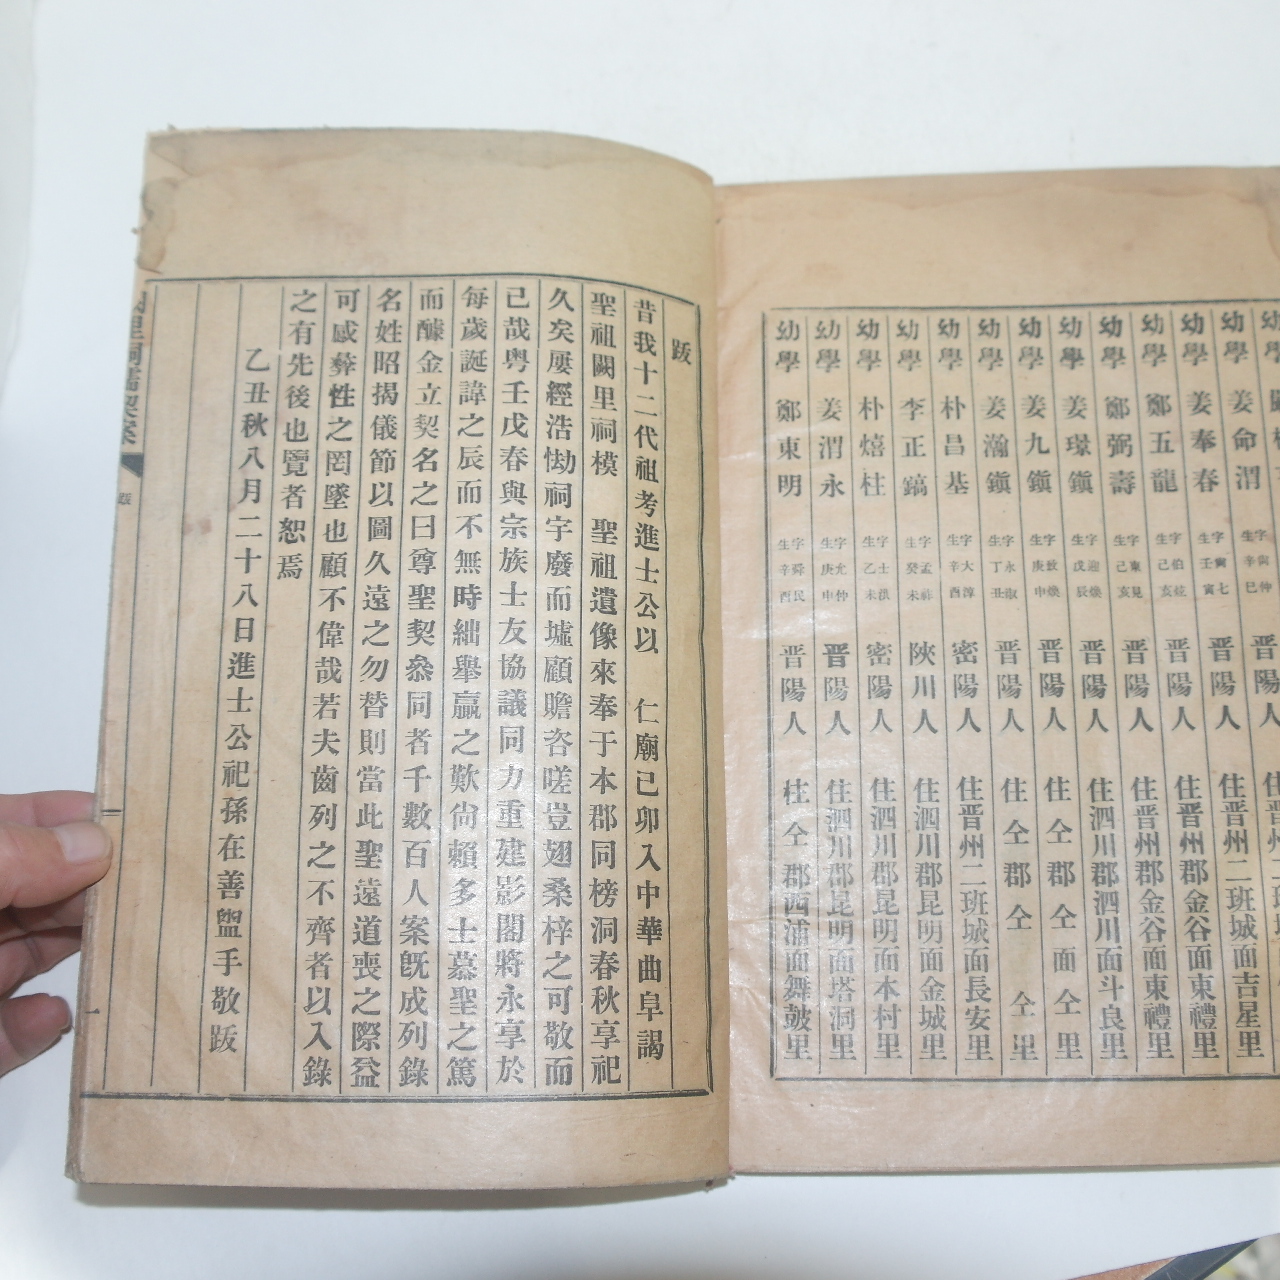 幼學 姜命渭 字 生辛巳 仲 晋陽人 住晋州二班城面吉星里
幼學 姜奉春 字寅七 生壬寅 晋陽人 住晋州郡金谷面東禮里
幼學 鄭五龍 字伯 生己亥 晋陽人 住晋州郡金谷面東禮里
幼學 鄭弼壽 字東見 生己亥 晋陽人 住泗川郡泗川面斗良里
幼學 姜璟鎭 字 煥 生戊辰 晋陽人 住仝郡仝面仝里
幼學 姜九鎭 字敦煥 生庚申 晋陽人 住仝郡仝 仝里
幼學 姜瀚鎭 字永淑 生丁丑 晋陽人
幼學 朴昌基 字大淳 生辛酉 密陽人 住晋州二班城面長安里
幼學 李正鎬 字孟 生癸未 陜川人 住泗川郡昆明面金城里
幼學 朴熺柱 字士洪 生乙未 密陽人 住泗川郡昆明面本村里
幼學 姜渭永 字允仲 生庚申 晋陽人 住泗川郡昆明面塔洞里
幼學 鄭東明 字舜民 生辛酉 晋陽人 住仝郡西浦面舞鼓里
跋
昔我十二代祖考進士公以 仁廟己卯入中華曲阜謁
聖祖闕里祠模 聖祖遺像來奉于本郡同榜洞春秋享祀
久矣屢經浩刼祠宇廢而墟顧瞻咨嗟豈翅桑梓之可敬而
己哉粤壬戊春與宗族士友協議同力重建影閣將永享於
每歲誕諱之辰而不無時絀擧贏之歎尙賴多士慕聖之篤
而醵金立契名之曰尊聖契叅同者千數百人案旣成列錄
名姓昭揭儀節以圖久遠之勿替則當此聖遠道喪之際益
可感彜性之罔墜也顧不偉哉若夫齒列之不齊者以入錄
之有先後也覽者恕焉
乙丑秋八月二十八日進士公祀孫在善盥手敬跋
里祠儒契案
跋
一